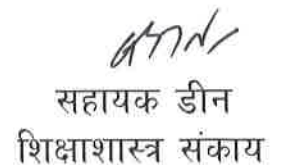 सहायक डीन
शिक्षाशास्त्र संकाय